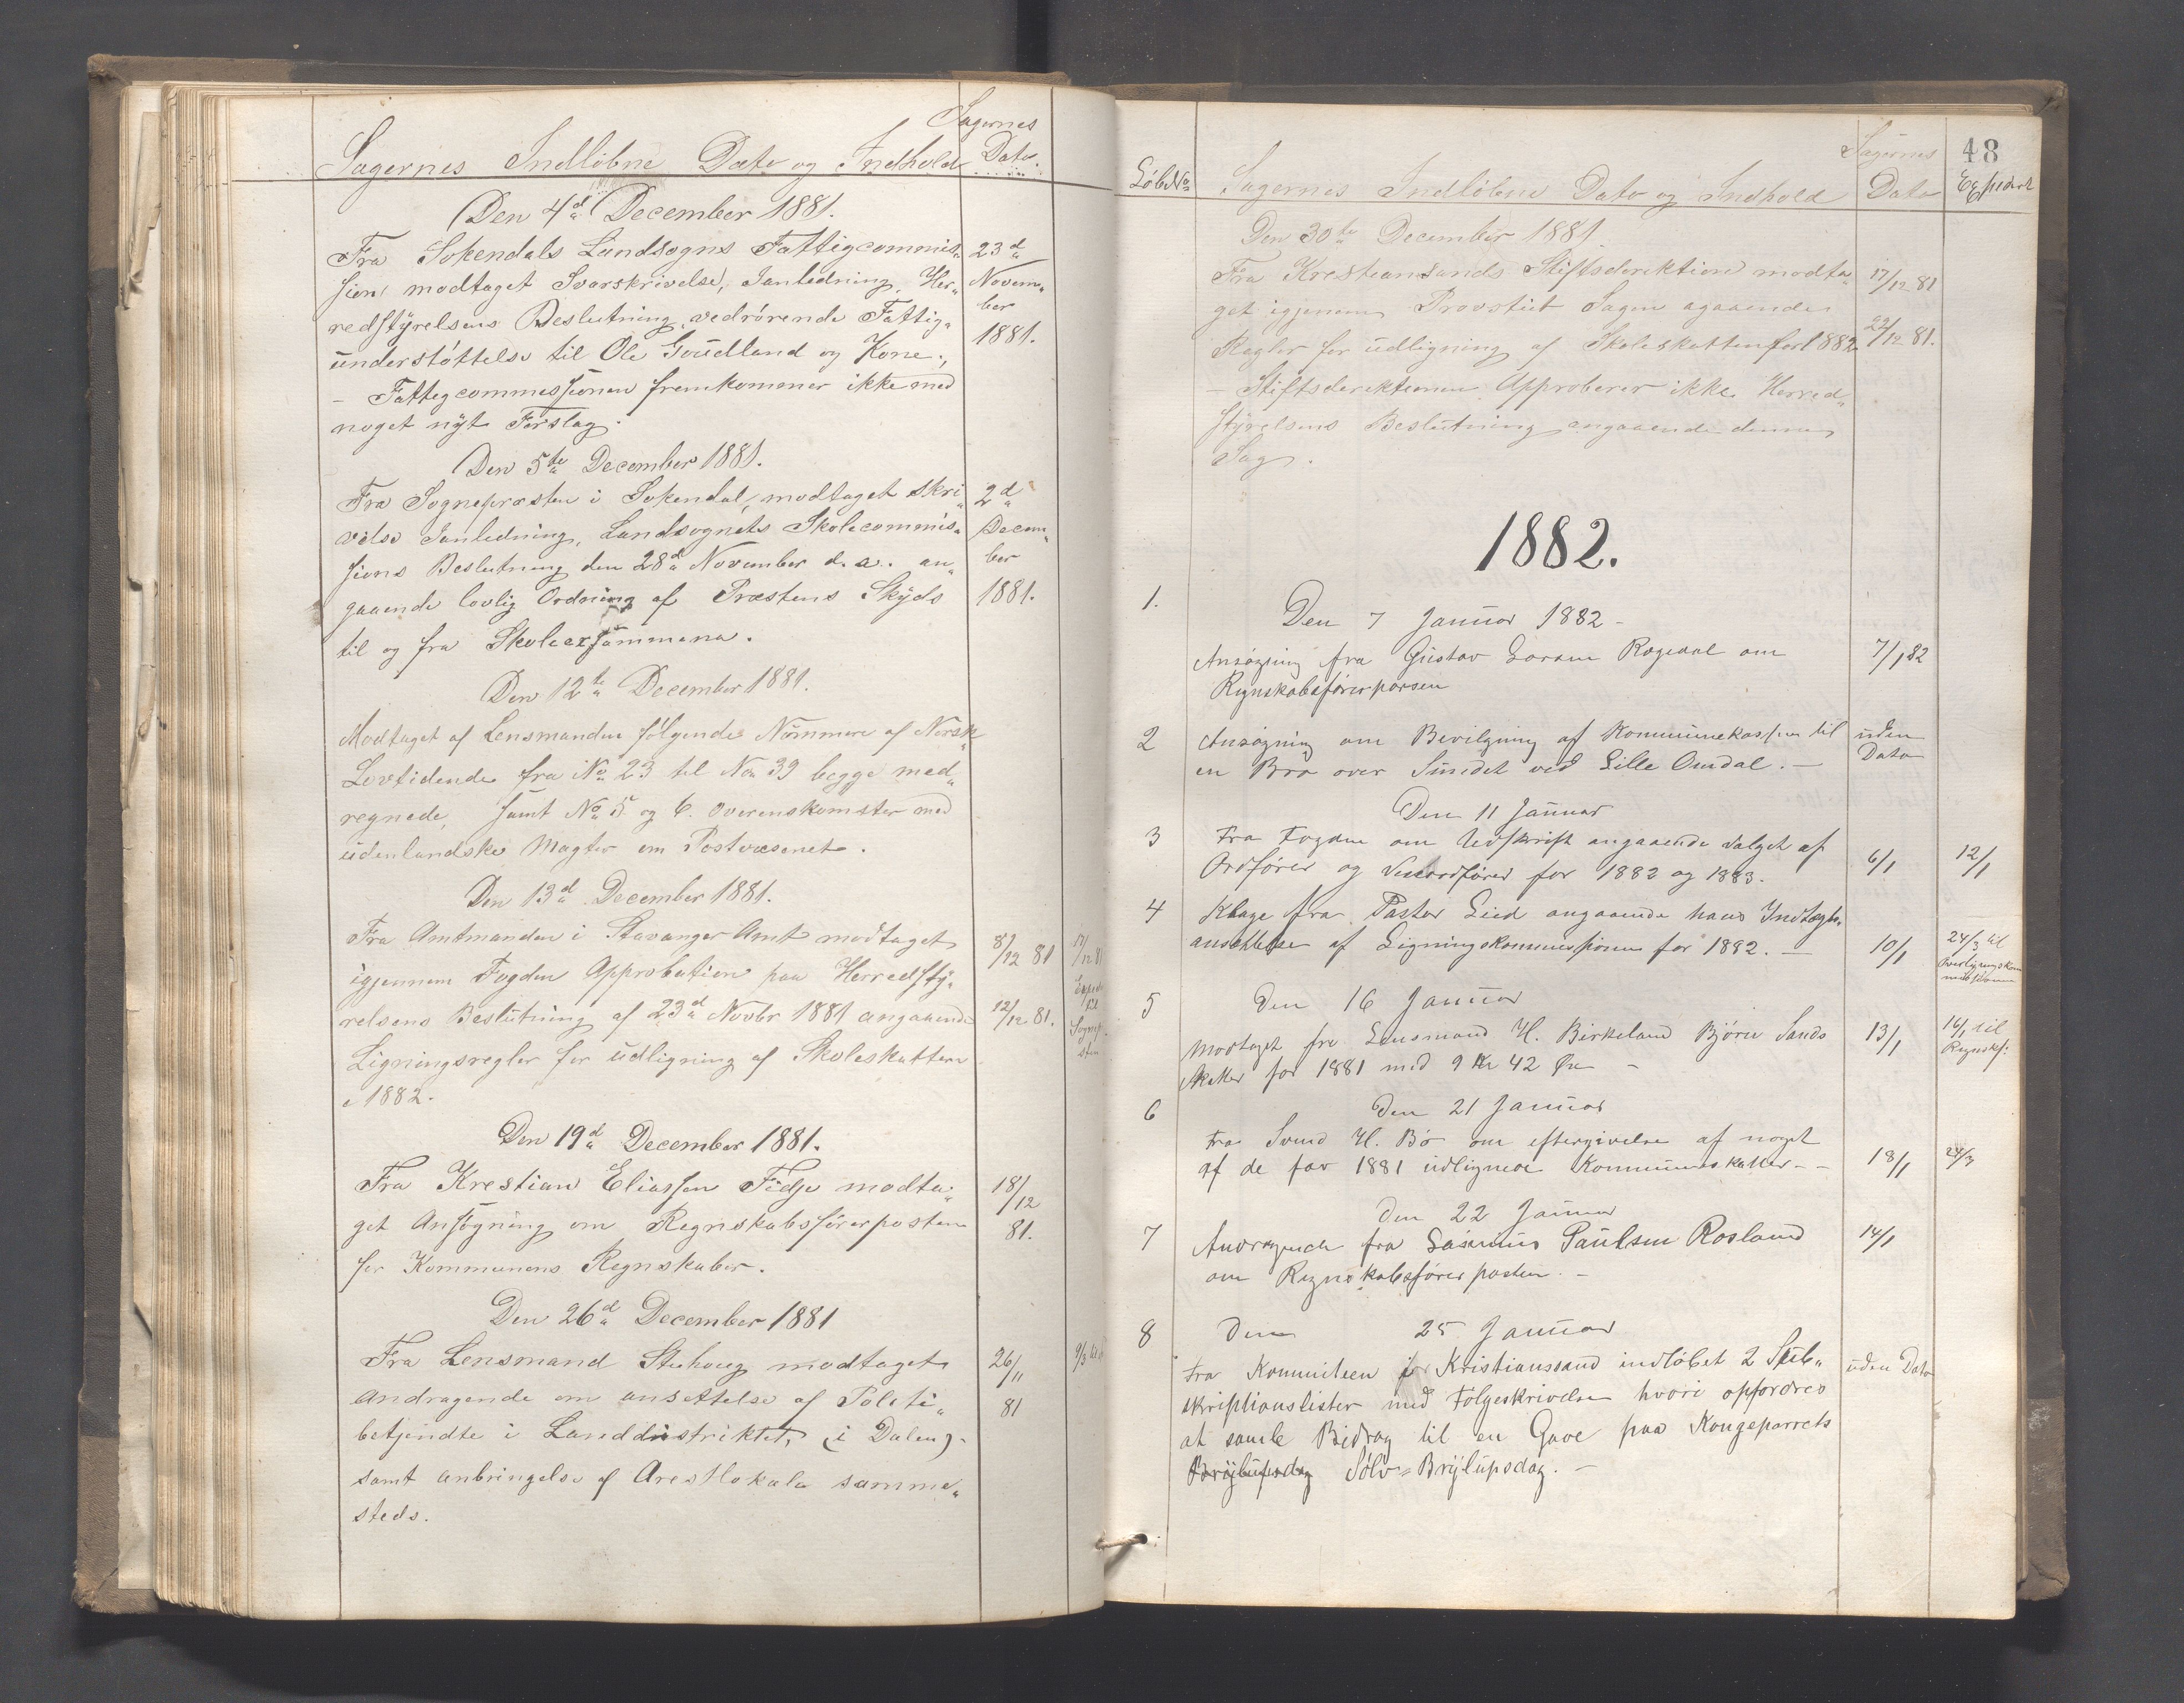 Sagernes Indløbne Dato og Indhold
Sagernes
Dato.
Den 4d December 1881.
Fra Sokendals Landsogns Fattigcommis„
sion modtaget Svarskrivelse, Ianledning, Her„
redstyrelsens Beslutning vedrørende Fattig„
understøttelse til Ole Goudland og Kone.,
– Fattigcommissionen fremkommer ikke med
noget nyt Forslag.
23d
Novem„
ber
1881.
Den 5te December 1881.
Fra Sognepræsten i Sokendal, modtaget Skri„
velse Ianledning, Landsognets Skolecommis„
sions Beslutning den 28d November d. a. an„
gaaende lovlig Ordning af Præstens Skyds
til og fra Skoleexammena.
2d
Decem„
ber
1881.
Den 12te December 1881.
Modtaget af Lensmanden følgende Nummere af Norsk
Lovtidende fra No 23 til No 39 begge med„
regnede, samt No 5 og 6. Overenskomster med
udenlandske Magter om Postvæsenet.
Den 13d December 1881.
Fra Amtmanden i Stavanger Amt modtaget
igjennem Fogden Approbation paa Herredsty„
relsens Beslutning af 23d Novbr 1881 angaaende
Ligningsregler for udligning af Skoleskatten
i 1882.
8/12 81
12/12 81.
Den 19d December 1881.
Fra Krestian Eliassen Fidje modta„
get Ansøgning om Regnskabsførerposten
for Kommunens Regnskaber.
18/12
81.
Den 26d December 1881
Fra Lensmand Stuhoug modtaget
Andragende om ansettelse af Politi„
betjendte i Landdistriktet, (i Dalen)
samt anbringelse af Arestlokale samme„
steds.
26/11
81
48
LøbeNo
Sagernes Indløbne Dato og Indhold
Sagernes
Dato
Expedert
Den 30te December 1881.
Fra Krestiansands Stiftsdirektion modta„
get igjenem Provstiet Sagen agaaende
Regler for udligning af Skoleskatten for 1882
– Stiftsdirektionen Approberer ikke Herred„
styrelsens Beslutning angaaende denne
Sag.
17/12 81
22/12 81.
1882.
1.
Den 7 Januar 1882 –
Ansøgning fra Gustav Rogdal om
Regnskabsførerposten
7/1 82
2
Ansøgning om Bevilgning af Kommunekassen til
en Bro over Sundet ved Lille Omdal. –
uden
Dato
Den 11 Januar
3
Fra Fogden om Udskrift angaaende valget af
Ordfører og Viceordfører for 1882 og 1883.
6/1
12/1
4
Klage fra Pastor Lied angaaende hans Indtægts„
ansettelse af Ligningskommissionen for 1882. –
10/1
24/3 til
Overligningskom
missionen
5
Den 16 Januar
Modtaget fra Lensmand H. Birkeland Bjørn Sands
skatter for 1881 med 9 Kr 42 Øre –
13/1
16/1 til
Regnskf:
6
Den 21 Januar
Fra Svend H. Bø om eftergivelse af noget
af de for 1881 udlignede Kommuneskatter – –
18/1
24/3
Den 22 Januar
7
Andragende fra Paulsen Rosland
om Regnskabsførerposten. –
14/1
8
Den 25 Januar
Fra Kommiteen for Kristianssand indløbet 2 Sub„
skriptionslister med Følgeskrivelse hvori opfordres
at samle Bidrag til en Gave paa Kongeparrets
Bryllupsdag Sølv=Bryllupsdag. –
uden Dato